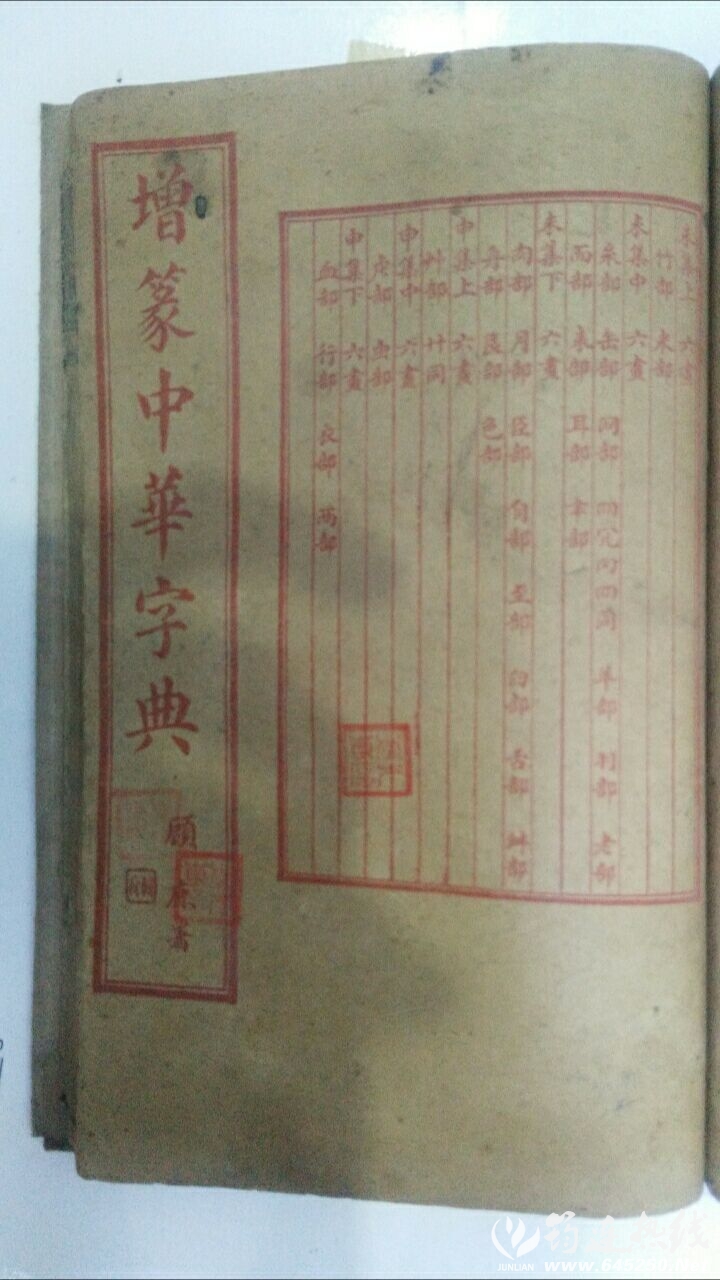 未集上 六畫
竹部 米部
未集中 六畫
糸部 缶部 网部 羊部 羽部 老部
而部 耒部 耳部 聿部
未集下 六畫
肉部 月部 臣部 自部 至部 臼部 舌部 舛部
舟部 艮部 色部
申集上 六畫
艸部 艹同
申集中 六畫
虍部 虫部
申集下 六畫
血部 行部 衣部 襾部
增篆中華字典
顧 書
JUNLIAN